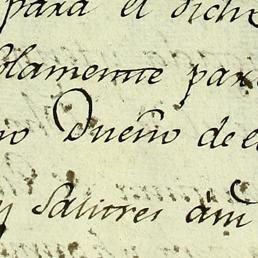 para el dicho
solamente para
no Dueño de el
y Salitres á mi